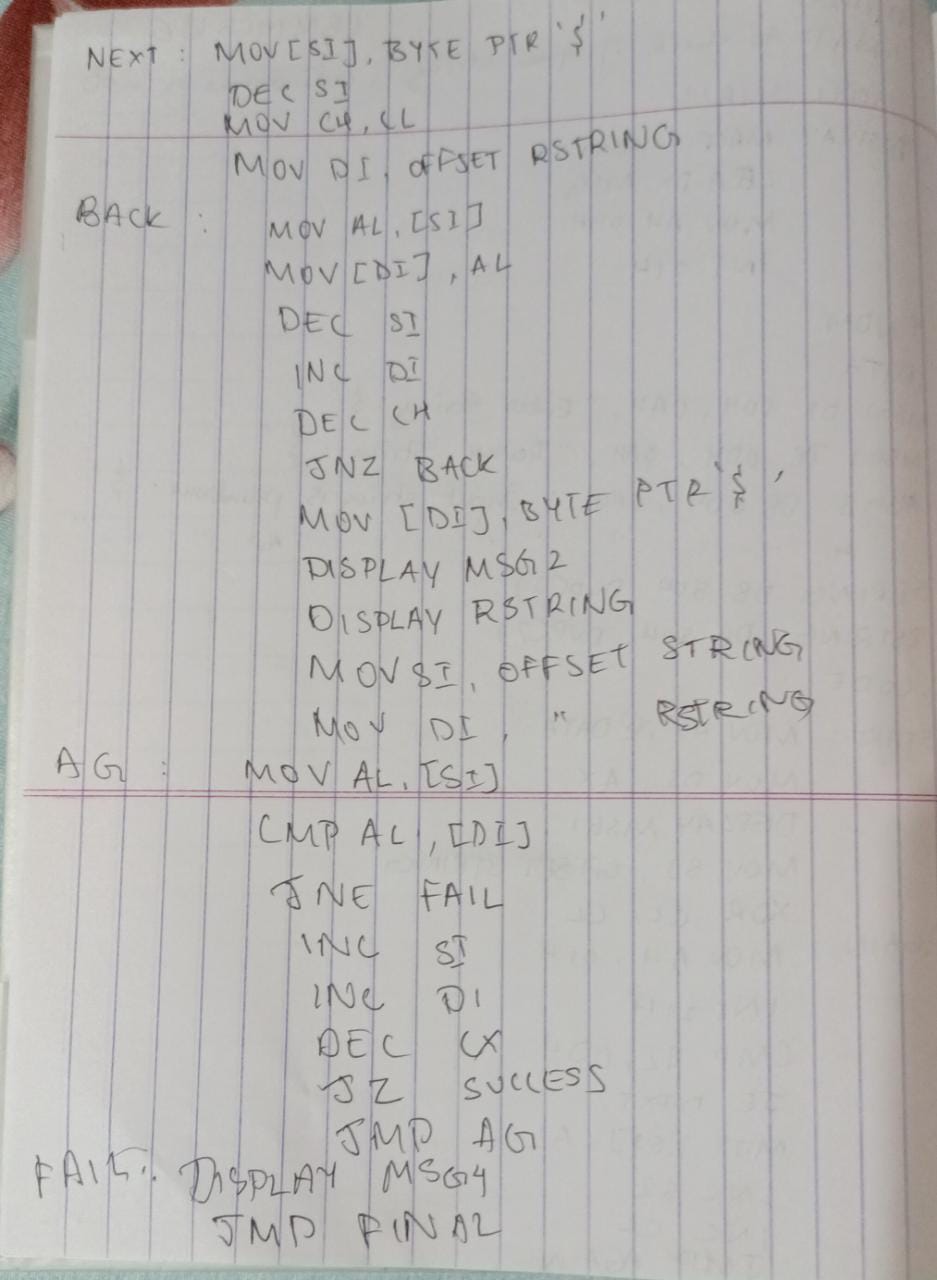 NEXT : MOV [SI], BYTE PTR '$'
DEC SI
MOV CH, CL
MOV DI, OFFSET RSTRING
BACK : MOV AL, [SI]
MOV [DI], AL
DEC SI
INC DI
DEC CH
JNZ BACK
MOV [DI], BYTE PTR '$'
DISPLAY MSG2
DISPLAY RSTRING
MOV SI, OFFSET STRING
MOV DI, " RSTRING
AG : MOV AL, [SI]
CMP AL, [DI]
JNE FAIL
INC SI
INC DI
DEC CX
JZ SUCCESS
JMP AG
FAIL: DISPLAY MSG4
JMP FINAL